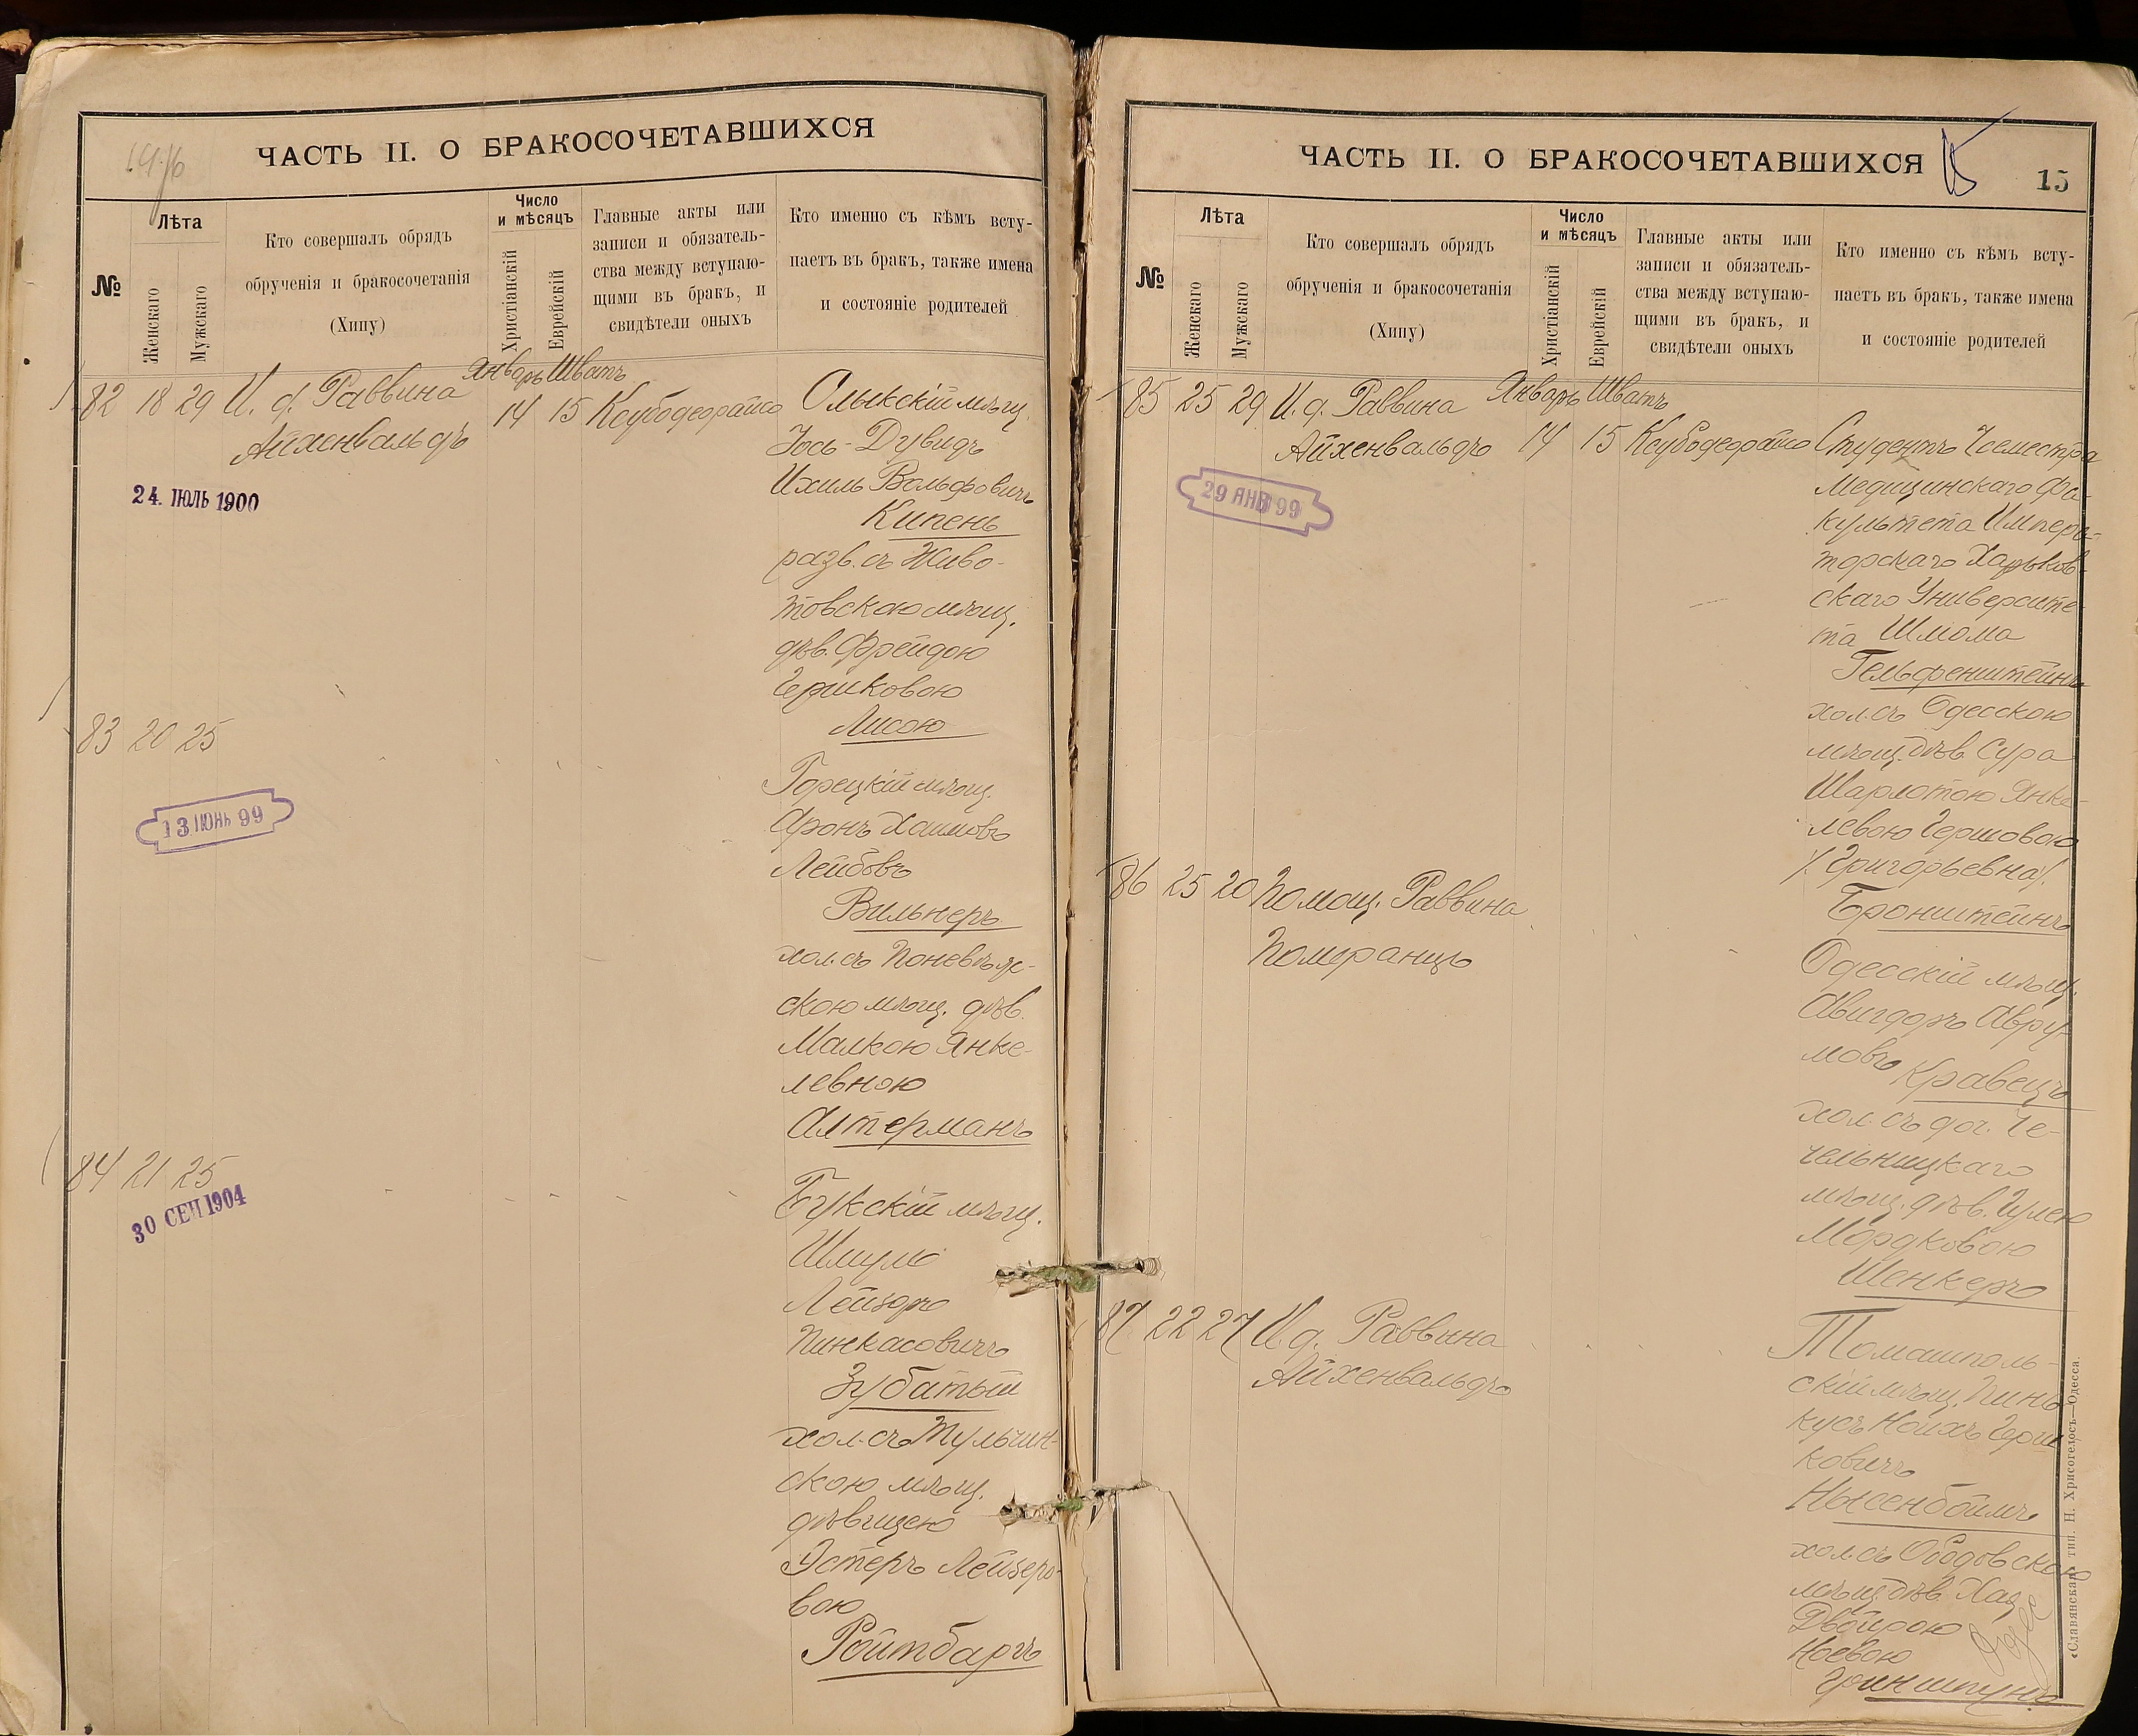 ЧАСТЬ II. О БРАКОСОЧЕТАВШИХСЯ
№
Лѣта
Женскаго
Мужскаго
Кто совершалъ обрядъ
обрученія и бракосочетанія
(Хипу)
Число
и мѣсяцъ
Христіанскій
Еврейскій
Главные акты или
записи и обязатель-
ства между вступаю-
щими въ бракъ, и
свидѣтели оныхъ
Кто именно съ кѣмъ всту-
паетъ въ бракъ, также имена
и состояніе родителей
Январь Шватъ
82 18 29 И. д. Раввина 14 15 Ксубодеорайсо Олыкскій мѣщ.
Айхенвальдъ
Іось-Дувидъ
24. ІЮЛЬ 1900
Ихиль Вольфовичъ
Кипень
разв. съ Живо-
товскою мѣщ.
дѣв. Фрейдою
Гершковою
Лисою
83 20 25
Горецкій мѣщ.
13 ІЮНЬ 99
Аронъ Хаимовъ
Лейбовъ
Вильнеръ
хол. съ Поневѣж-
скою мѣщ. дѣв.
Малкою Янке-
левною
Алтерманъ
84 21 25
30 СЕН 1904
Букскій мѣщ.
Шмуль
Лейзеръ
Пинкасовичъ
Зубатый
хол. съ Тульчин-
скою мѣщ.
дѣвицею
Эстеръ Лейзеро-
вою
Ройтбаргъ
ЧАСТЬ II. О БРАКОСОЧЕТАВШИХСЯ
15
15
№
Лѣта
Женскаго
Мужскаго
Кто совершалъ обрядъ
обрученія и бракосочетанія
(Хипу)
Число
и мѣсяцъ
Христіанскій
Еврейскій
Главные акты или
записи и обязатель-
ства между вступаю-
щими въ бракъ, и
свидѣтели оныхъ
Кто именно съ кѣмъ всту-
паетъ въ бракъ, также имена
и состояніе родителей
Январь Шватъ
85 25 29 И. д. Раввина
Айхенвальдъ 14 15 Ксубодеорайсо Студентъ семестра
29 ЯНВ 99
Медицинскаго Фа-
культета Импера-
торскаго Харьков-
скаго Университе-
та Шлома
Гельфенштейнъ
хол. съ Одесскою
мѣщ. дѣв. Сура
Шарлотою Янке-
левою Гершовою
/Григорьевна/
Бронштейнъ
86 25 20 Помощ. Раввина
Померанцъ
Одесскій мѣщ.
Авигдоръ Авру-
мовъ Кравецъ
хол. съ доч. Че-
чельницкаго
мѣщ. дѣв. Гулею
Мордковою
Шенкеръ
87 22 27 И. д. Раввина
Айхенвальдъ
Томашполь-
скій мѣщ. Пинь-
кусъ Нойхъ Герш-
ковичъ
Нысенбоймъ
хол. съ Ободовскою
мѣщ. дѣв. Хая
Двойрою
Ноевою
Гриншпунъ
«Славянская» тип. Н. Хрисогелосъ—Одесса.